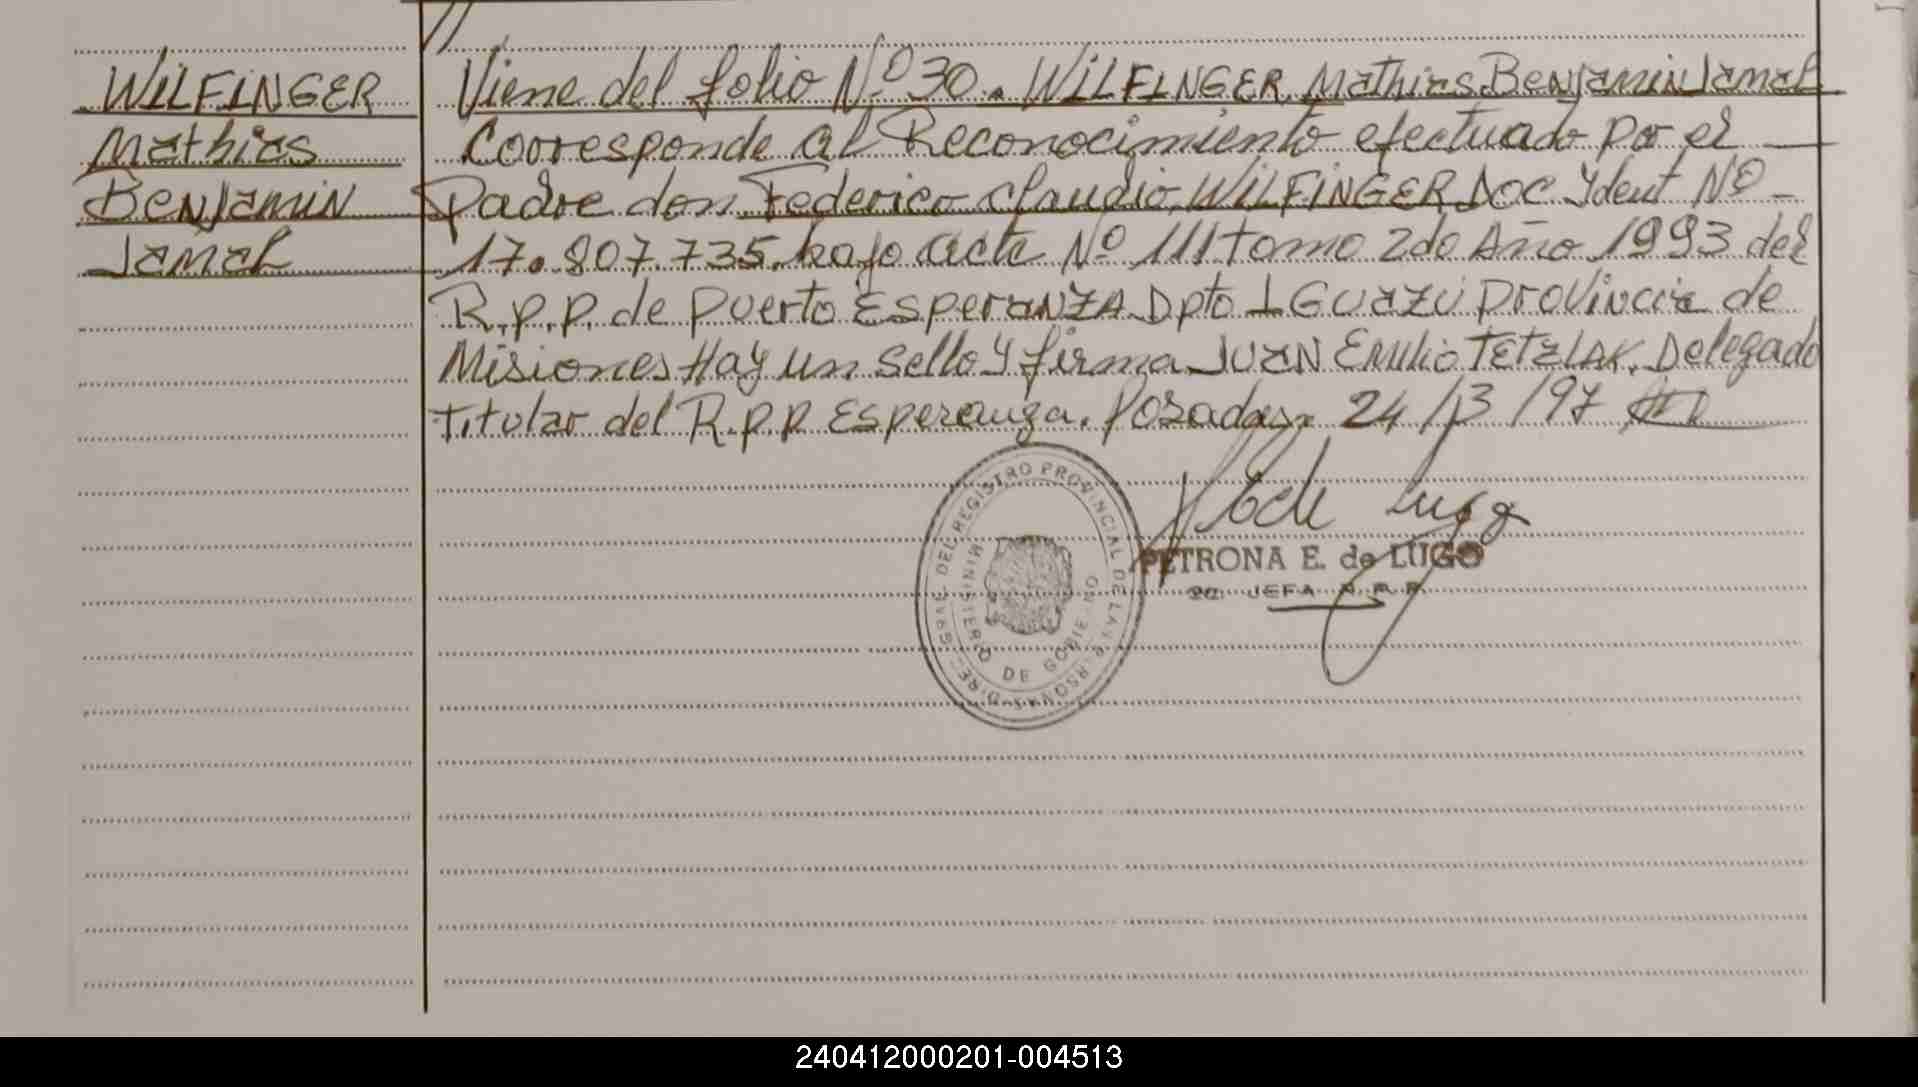 //
WILFINGER
Mathias
Benjamin
Jamal
Viene del folio Nº 30. WILFINGER Mathias Benjamin Jamal
Corresponde al Reconocimiento efectuado por el
Padre don Federico Claudio WILFINGER DOC Ydent Nº
17.807.735 bajo acta Nº 111 tomo 2do Año 1993 del
R.p.p. de Puerto Esperanza Dpto IGUAZÚ Provincia de
Misiones Hay un Sello y firma JUAN Emilio TETZLAK. Delegado
Titular del R.p.p Esperanza. Posadas. 24/3/97
PETRONA E. de LUGO
JEFA R.P.P.
DEL REGISTRO PROVINCIAL DE LAS PERSONAS
MINISTERIO DE GOBIERNO
240412000201-004513